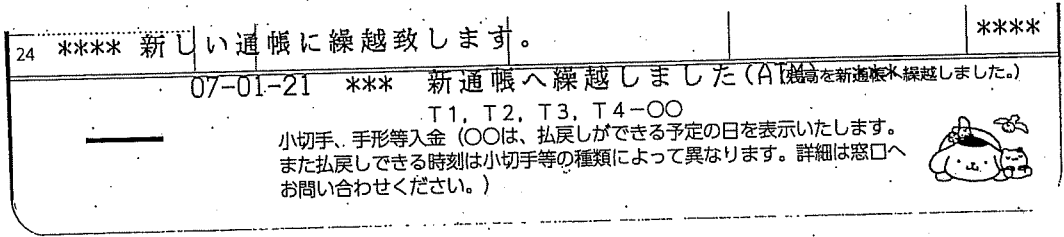 24 **** 新しい通帳に繰越致します。 ****
07-01-21 *** 新通帳へ繰越しました(ATM) ***
(残高を新通帳へ繰越しました。)
T1, T2, T3, T4-〇〇
小切手、手形等入金(〇〇は、払戻しができる予定の日を表示いたします。
また払戻しできる時刻は小切手等の種類によって異なります。詳細は窓口へ
お問い合わせください。)